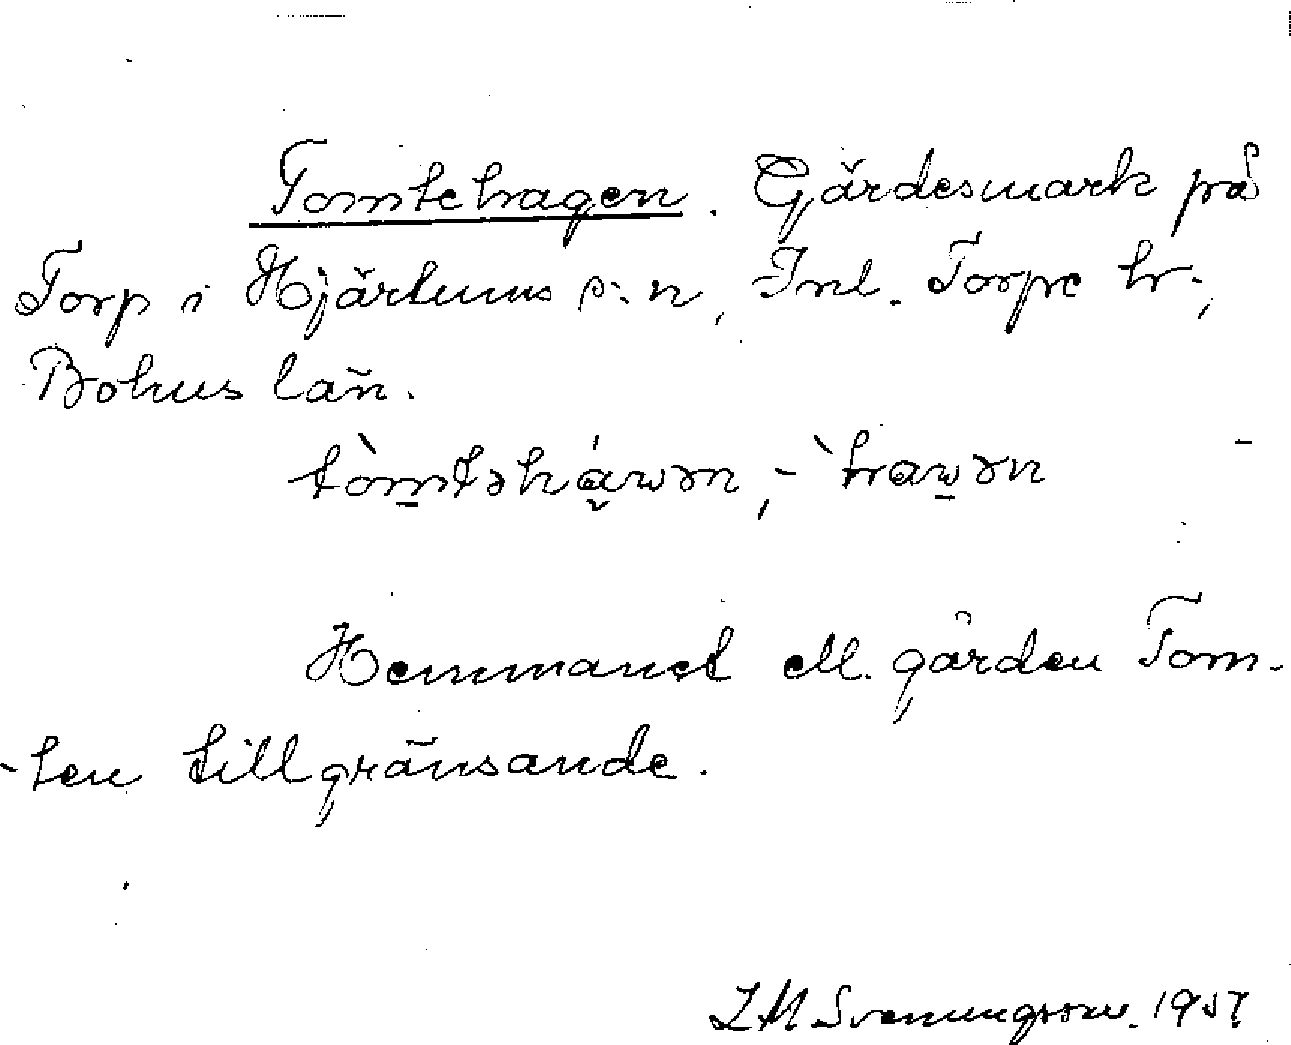 Tomtehagen. Gärdesmark på
Torp i Hjärtums s:n, Inl. Torpe hr.,
Bohus län.
tòmtəháwən, -hàwən
Hemmanet ell. gården Tom-
-ten tillgränsande.
Svenungsson. 1957